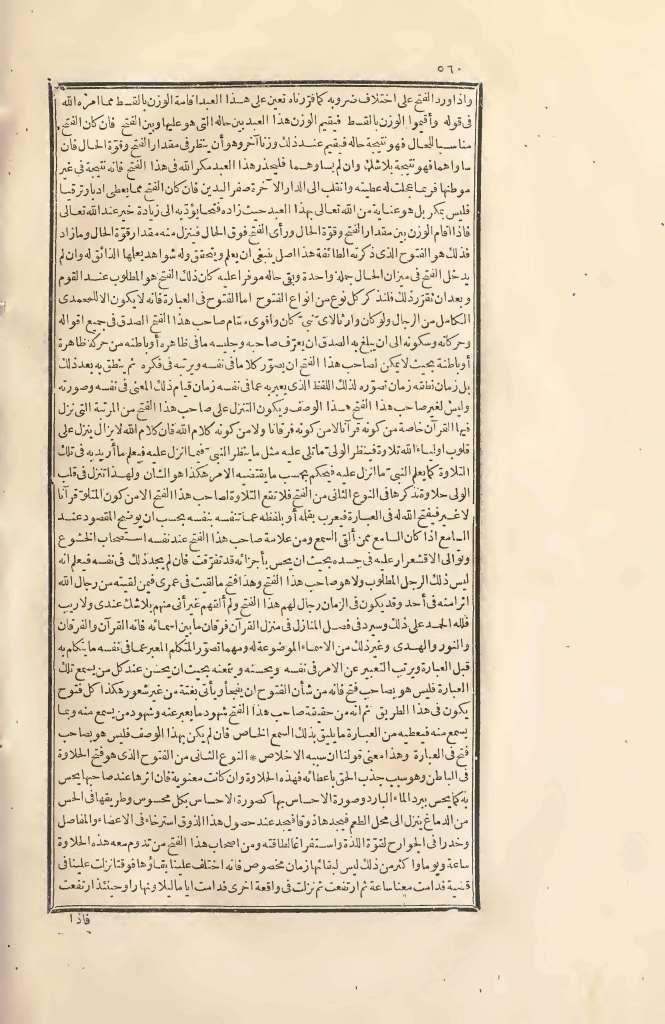 ٥٦٠
واذا ورد الفتح على اختلاف ضروبه كما قررناه تعين على هذا العبد اقامة الوزن بالقسط مما امره الله
فى قوله وأقيموا الوزن بالقسط فيقيم الوزن هذا العبد بين حاله التى هو عليها وبين الفتح فان كان الفتح
مناسبا للحال فهو نتيجة حاله فيقيم عند ذلك وزنا آخر وهو أن ينظر فى مقدار الفتح وقوّة الحال فان
ساواهما فهو نتيجة بلا شك وان لم يساوهما فليحذر هذا العبد مكر الله فى هذا الفتح فانه نتيجة فى غير
موطنها فربما عجلت له عطيته وانقلب الى الدار الآخرة صفر اليدين فان كان الفتح مما يعطى ادبا وترقيا
فليس بمكر بل هو عناية من الله تعالى بهذا العبد حيث زاده فتحا يؤدّيه الى زيادة خير عند الله تعالى
فاذا أقام الوزن بين مقدار الفتح وقوة الحال ورأى الفتح فوق الحال فينزل منه مقدار قوّة الحال وما زاد
فذلك هو الفتوح الذى ذكرته الطائفة هذا اصل ينبغى ان يعلم ويتحقق وله شواهد يعلمها الذائق له وان لم
يدخل الفتح فى ميزان الحال جملة واحدة وبقى حاله موفرا عليه كان ذلك الفتح هو المطلوب عند القوم
وبعد ان تقرّر ذلك فلنذكر كل نوع من انواع الفتوح اما الفتوح فى العبارة فانه لا يكون الا للمحمدى
الكامل من الرجال ولو كان وارثا لاى نبى كان وأقوى مقام صاحب هذا الفتح الصدق فى جميع اقواله
وحركاته وسكونه الى ان يبلغ به الصدق ان يعرّف صاحبه وجليسه ما فى ظاهره أو باطنه من حركة ظاهرة
أو باطنة بحيث لا يمكن لصاحب هذا الفتح ان يصوّر كلاما فى نفسه ويرتبه فى فكره ثم ينطق به بعد ذلك
بل زمان نطقه زمان تصوّره لذلك اللفظ الذى يعبر به عما فى نفسه زمان قيام ذلك المعنى فى نفسه وصورته
وليس لغير صاحب هذا الفتح هذا الوصف ويكون التنزل على صاحب هذا الفتح من المرتبة التى نزل
فيها القرآن خاصة من كونه قرآنا لا من كونه فرقانا ولا من كونه كلام الله فان كلام الله لا يزال ينزل على
قلوب اولياء الله تلاوة فينظر الولى ما تلى عليه مثل ما ينظر النبى فيما انزل عليه فيعلم ما أريد به فى تلك
التلاوة كما يعلم النبى ما انزل عليه فيحكم بحسب ما يقتضيه الامر هكذا هو الشأن ولهذا تنزل فى قلب
الولى حلاوة نذكرها فى النوع الثانى من الفتح فلا تقع التلاوة لصاحب هذا الفتح الا من كون المتلو قرآنا
لا غير فيفتح الله له فى العبارة فيعرب بقلمه أو بلفظه عما تنفسه بنفسه بحسب ان يوضح المقصود عند
السامع اذا كان السامع ممن ألقى السمع ومن علامة صاحب هذا الفتح عند نفسه استصحاب الخشوع
وتوالى الاقشعرار عليه فى جسده بحيث ان يحس بأجزائه قد تفرّقت فان لم يجد ذلك فى نفسه فيعلم انه
ليس ذلك الرجل المطلوب ولا هو صاحب هذا الفتح وهذا فتح ما لقيت فى عمرى فيمن لقيته من رجال الله
اثرا منه فى أحد وقد يكون فى الزمان رجال لهم هذا الفتح ولم ألقهم غير أنى منهم بلا شك عندى ولا ريب
فلله الحمد على ذلك وسيرد فى فصل المنازل فى منزل القرآن فرقان ما بين اسمائه فانه القرآن والفرقان
والنور والهدى وغير ذلك من الاسماء الموضوعة له ومهما تصوّر المتكلم المعبر عما فى نفسه ما يتكلم به
قبل العبارة ويرتب التعبير عن الامر فى نفسه ويحسنه وينمعنه بحيث ان يحسن عند كل من يسمع تلك
العبارة فليس هو بصاحب فتح فانه من شأن الفتوح ان يفجأ ويأتى بغتة من غير شعور هكذا كل فتوح
يكون فى هذا الطريق ثم انه من حقيقة صاحب هذا الفتح شهود ما يعبر عنه وشهود من يسمع منه وبما
يسمع منه فيعطيه من العبارة ما يليق بذلك السمع الخاص فان لم يكن بهذا الوصف فليس هو بصاحب
فتح فى العبارة وهذا معنى قولنا ان سببه الاخلاص * النوع الثانى من الفتوح الذى هو فتح الحلاوة
فى الباطن وهو سبب جذب الحق باعطائه فهذه الحلاوة وان كانت معنوية فان اثرها عند صاحبها يحس
به كما يحس ببرد الماء البارد وصورة الاحساس بها كصورة الاحساس بكل محسوس وطريقها فى الحس
من الدماغ ينزل الى محل الطعم فيجدها ذوقا فيجد عند حصول هذا الذوق استرخاء فى الاعضاء والمفاصل
وخدرا فى الجوارح لقوّة اللذة واستفراغا لطاقته ومن اصحاب هذا الفتح من تدوم معه هذه الحلاوة
ساعة ويوما واكثر من ذلك ليس لبقائها زمان مخصوص فانه اختلف علينا بقاؤها فوقتا نزلت علينا فى
قضية فدامت معنا ساعة ثم ارتفعت ثم نزلت فى واقعة اخرى فدامت اياما ليلا ونهارا وحينئذ ارتفعت
فاذا